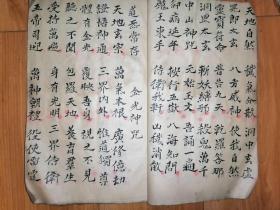 天地自然 穢氣氛散 洞中玄虛
晃郎太玄 八方威神 使我自然
靈寶符命 普告九天 乾羅答那
洞罡太玄 斬妖縛邪 殺鬼萬千
中山神咒 元始玉文 吾誦一遍
按行五嶽 八海知聞
王束手 侍衛我軒 消散
道炁常存
金光神咒
天地玄宗 萬氣本根 廣修億劫
證悟神通 三界内外 惟道獨尊
體有金光 覆映吾身 視之不見
聽之不聞 包羅天地 養育羣生
受持萬遍 身有光明 三界侍衛
五帝司迎 萬神朝禮 役使雷霆